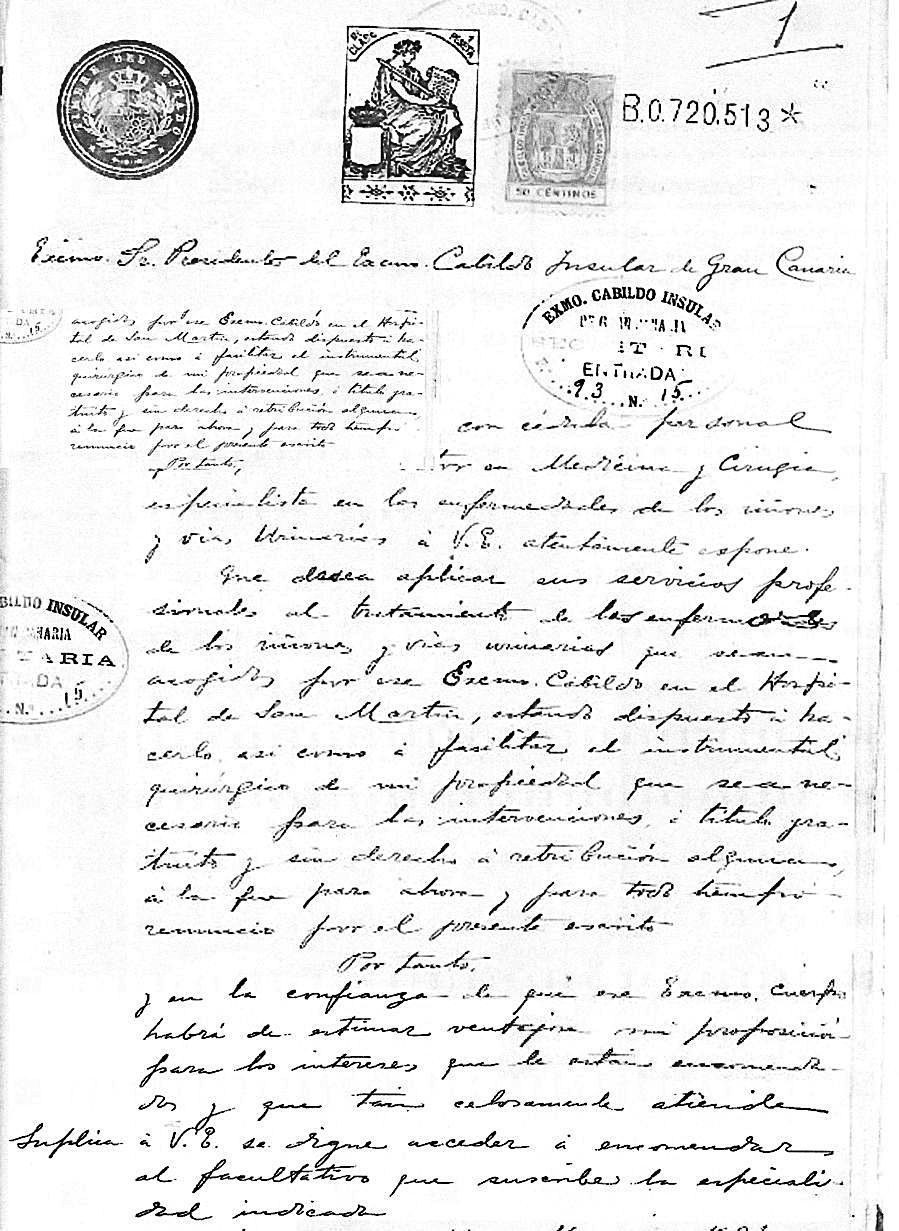 1
TIMBRE DEL ESTADO
8ª CLASE 1 PESETA
50 CENTIMOS
B.0.720.513*
Excmo. Sr. Presidente del Excmo. Cabildo Insular de Gran Canaria
EXMO. CABILDO INSULAR
ENTRADA
N. 15
acogidos por ese Excmo. Cabildo en el Hospi-
tal de San Martin, estando dispuesto á ha-
cerlo asi como á facilitar el instrumental
quirúrgico de mi propiedad que sea ne-
cesario para las intervenciones, á titulo gra-
tuito y sin derecho á retribución alguna,
á la que para ahora y para todo tiempo
renuncio por el presente escrito
Por tanto,
con cédula personal
en Medicina y Cirugia,
especialista en las enfermedades de los riñones
y vias Urinarias á V.E. atentamente expone:
Que desea aplicar sus servicios profe-
sionales al tratamiento de las enfermedades
de los riñones y vias urinarias que sean
acogidos por ese Excmo. Cabildo en el Hospi-
tal de San Martin, estando dispuesto á ha-
cerlo asi como á facilitar el instrumental
quirúrgico de mi propiedad que sea ne-
cesario para las intervenciones, á titulo gra-
tuito y sin derecho á retribución alguna,
á la que para ahora y para todo tiempo
renuncio por el presente escrito
CABILDO INSULAR
N. 15
Por tanto,
y en la confianza de que ese Excmo. Cuerpo
habrá de estimar ventajosa mi proposición
para los intereses que le están encomenda-
dos y que tan celosamente atiende
Suplica á V.E. se digne acceder á encomendar
al facultativo que suscribe la especiali-
dad indicada